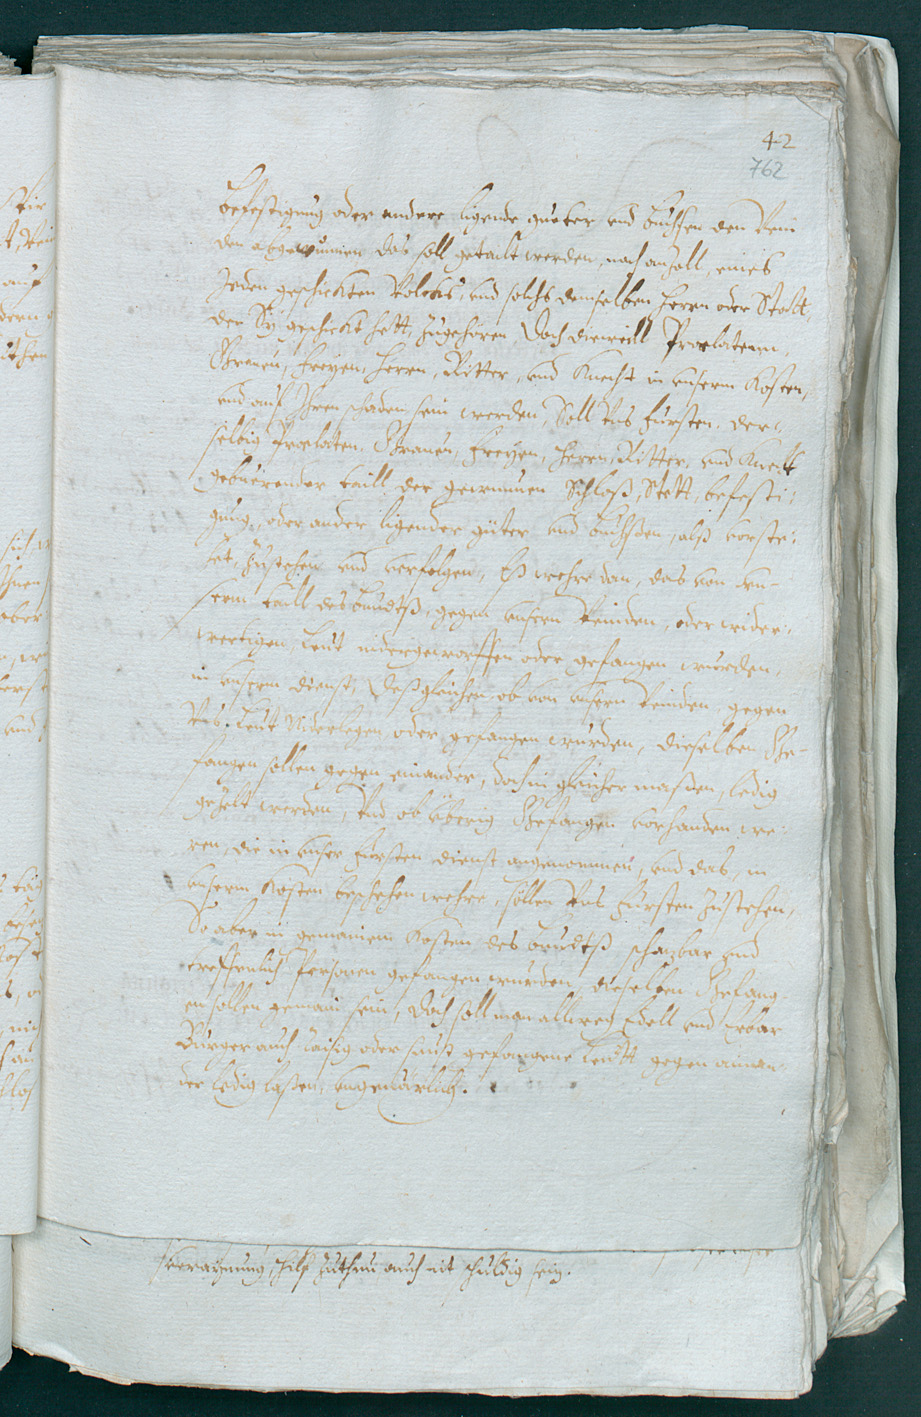 42
762
Befestigung oder andere ligende gueter und Buchssen den Vein
den abgewunnen das soll getailt werden, nach anzall, eines
Jeden geschickten Volcks, und solchs demselben Herrn oder Statt,
der Sy geschickt hett, zugehoren, Doch dieweill Praelatenn,
Graven, freyen, Herrn, Ritter, und Knecht in unserm Kosten,
und auf Ihren schaden sein werden, Soll Uns fursten, der-
selbig Praelaten, Graven, freyen, Herrn, Ritter, und Knecht
gebuerender taill, der gewunnen Schloß, Stett, befesti-
gung, oder ander ligender güter und Buchssen, alß vorste-
het, Zustehen und verfolgen, Eß wehre dan, das von un-
serm taill des Bundtß, gegen unsern Veinden, oder wider-
wertigen, Leut nidergeworffen oder gefangen wurden,
in unserm dienst, Deßgleichen ob von unsern Veinden, gegen
Uns, Leut Niderlegen oder gefangen wurden, dieselben Ge-
fangen sollen gegen einander, doch in gleicher massen, ledig
gezelt werden, Und ob überig Gefangen vorhanden we-
ren, die in unser fursten dienst angenommen, und das, in
unserm Kosten beschehen wehre, sollen Uns fursten zustehen,
So aber in gemainem Kosten des Bundtß schazbar und
treffenlich Personen gefangen wurden, dieselben Gefang-
en sollen gemain sein, Doch soll man allweg Edell und Erbar
Burger auch Raisig oder sunst gefangene Leutt gegen ainan-
der ledig lassen, ungevärlich.
hilf zuthun auch nit schuldig sein.